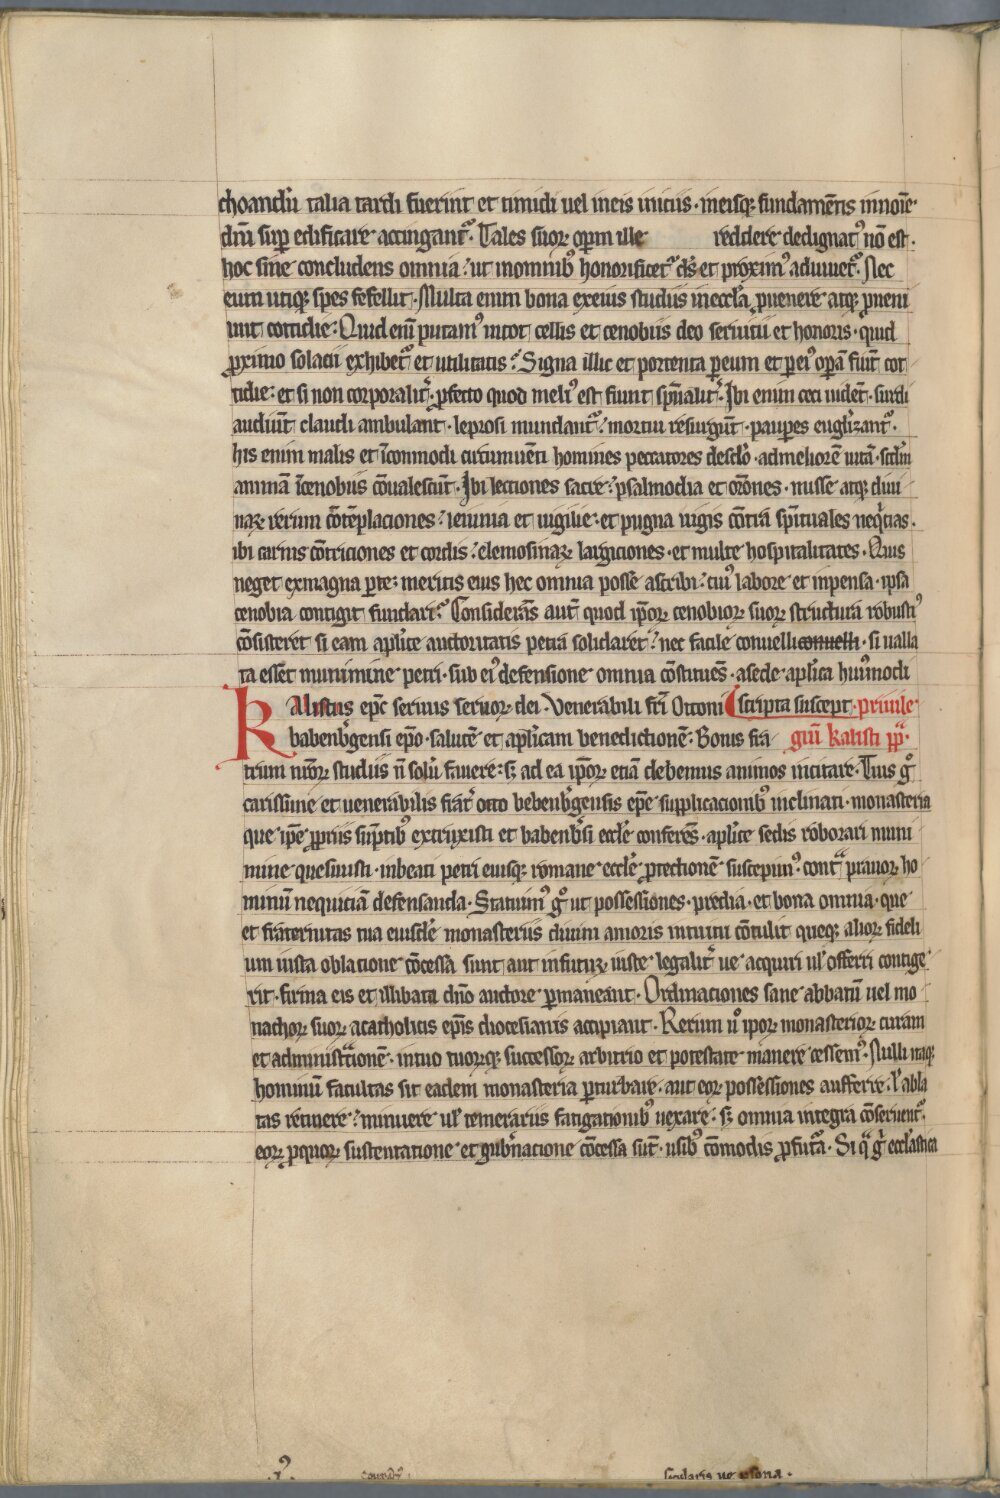 choandū talia tardi fuerint et timidi uel ineis iniciis · ineisq; fundamētis innoīe
dn̄i suꝑ edificare accingant᷑. Tales suoꝝ oꝑim ille reddere dedignatꝰ nō est.
hoc fine concludens omnia: ut inomnibꝰ honorificet᷑ ds̄ et proximꝰ adiuuet᷑. Nec
eum utiq; spes fefellit. Multa enim bona exeius studiis ineccl̄a ꝓuenere atq; ꝓueni
unt cottidie. Quid eni̅ putamꝰ intot cellis et cenobiis deo seruitii et honoris · quid
ꝓximo solacii exhibet᷑ et utilitatis? Signa illic et portenta ꝑeum et ꝑeiꝰ oꝑa fiūt cot
tidie: et si non corporalit᷑ · ꝓfecto quod meliꝰ est fiunt sp̄ualit᷑. Ibi enim ceci uident · surdi
audiūt claudi ambulant · leprosi mundant᷑: mortui resurgūt · pauꝑes eugl̓izant᷑.
his enim malis et īcommodi circumuēti homines peccatores desclo · admeliorē uitā · scd̄m
animā īcenobiis cōualescūt. Ibi lectiones sacre: psalmodia et orōnes · misse atq; diui
naꝝ rerum cōtēplaciones: ieiunia et uigilie · et pugna iugis cōtra sp̄ituales neq̇cias.
ibi carnis cōtriciones et cordis: elemosinaꝝ largiciones · et multe hospitalitates. Quis
neget exmagna ꝑte meritis eius hec omnia posse ascribi: cuiꝰ labore et inpensa · ipsa
cenobia contigit fundari? Considerās aut̄ quod ip̄oꝝ cenobioꝝ suoꝝ structura robustiꝰ
cōsisteret si eam apl̓ice auctoritatis petra solidaret: nec facile conuelli conuelli · si ualla
ta esset munimine petri · sub eiꝰ defensione omnia cōstituēs · asede apl̓ica huiꝰmodi
KAlistus ep̄c seruus seruoꝝ dei. Venerabili fr̄i Ottoni scripta suscepit · priuile
babenb̓gensi ep̄o · salutē et apl̓icam benedictionē. Bonis fra giū kalisti pp̄.
trum nr̄oꝝ studiis n̄ solū fauere: s; ad ea ip̄oꝝ etiā debemus animos incitare. Tuis gͦ
carissime et uenerabilis frāt᷑ otto bebenb̓gensis ep̄e supplicacionibꝰ inclinati · monasteria
que ip̄e ꝓpriis sūptibꝰ extruxisti et babenb̓si eccl̓e conferēs · apl̓ice sedis roborari muni
mine quesiuisti · inbeati petri eiusq; romane eccl̓e ꝓtectionē suscepimꝰ · contͣ prauoꝝ ho
minū nequiciā defensanda. Statuimꝰ gͦ ut possessiones · predia · et bona omnia · que
et fraternitas tua eiusdē monasteriis diuini amoris intuitu cōtulit queq; alioꝝ fideli
um iusta oblatione cōcessa sunt aut infuturū iuste legalit᷑ ue acquiri ul̓ offerri contige
rit · firma eis et illibata dn̄o auctore ꝑmaneant. Ordinaciones sane abbatū uel mo
nachoꝝ suoꝝ acatholicis ep̄is diocesianis accipiant. Rerum u̓ ipoꝝ monasterioꝝ curam
et administͣtionē · intuo tuorq; successoꝝ arbitrio et potestate manere cēssemꝰ. Nulli itaq;
hominū facultas sit eadem monasteria ꝑturbare · aut eoꝝ possessiones aufferre · l̓ abla
tas retinere: minuere ul̓ temerariis fatigationibꝰ uexare: s; omnia integra cōseruent᷑.
eoꝝ ꝑquoꝝ sustentatione et gub̓natione cōcessa sūt · usibꝰ cōmodis ꝓfuta. Si qͣ g᷑ eccl̓astica
secularis ue ꝑsona.